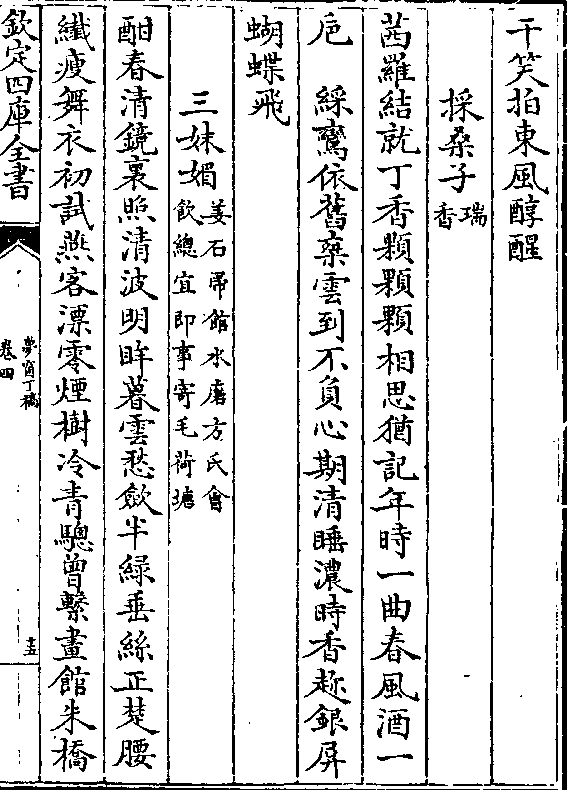 干笑拍東風醇醒
採桑子瑞香
茜羅結就丁香顆顆顆相思猶記年時一曲春風酒一
巵　綵鸞依舊乘雲到不負心期清睡濃時香趂銀屏
蝴蝶飛
三妹媚姜石帚館水磨方氏會飲總宜即事寄毛荷塘
酣春清鏡裏照清波明眸暮雲愁歛半緑垂絲正楚腰
纎瘦舞衣初試燕客漂零煙樹冷青驄曾繫畫館朱橋
欽定四庫全書
夢窗丁稿
卷四
十五